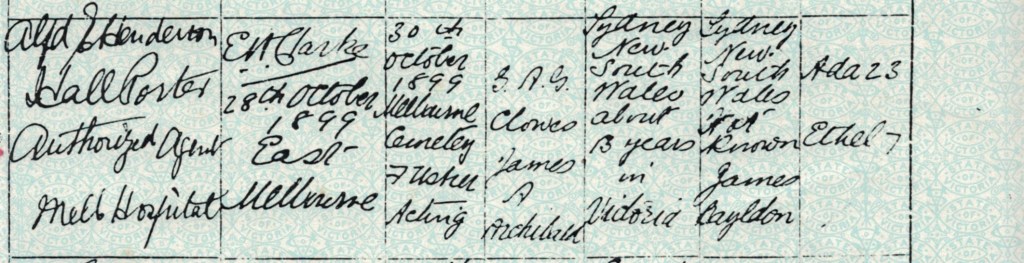 Alfd J Henderson
Hall Porter
Authorized Agent
Melb Hospital
E.H. Clarke
28th October
1899
East
Melbourne
30th
October
1899
Melbourne
Cemetery
F Usher
Acting
S. A. G.
Clowes
James
A
Archibald
Sydney
New
South
Wales
about
13 years
in
Victoria
Sydney
New
South
Wales
Not
Known
James
Cayldon
Ada 23
Ethel 7